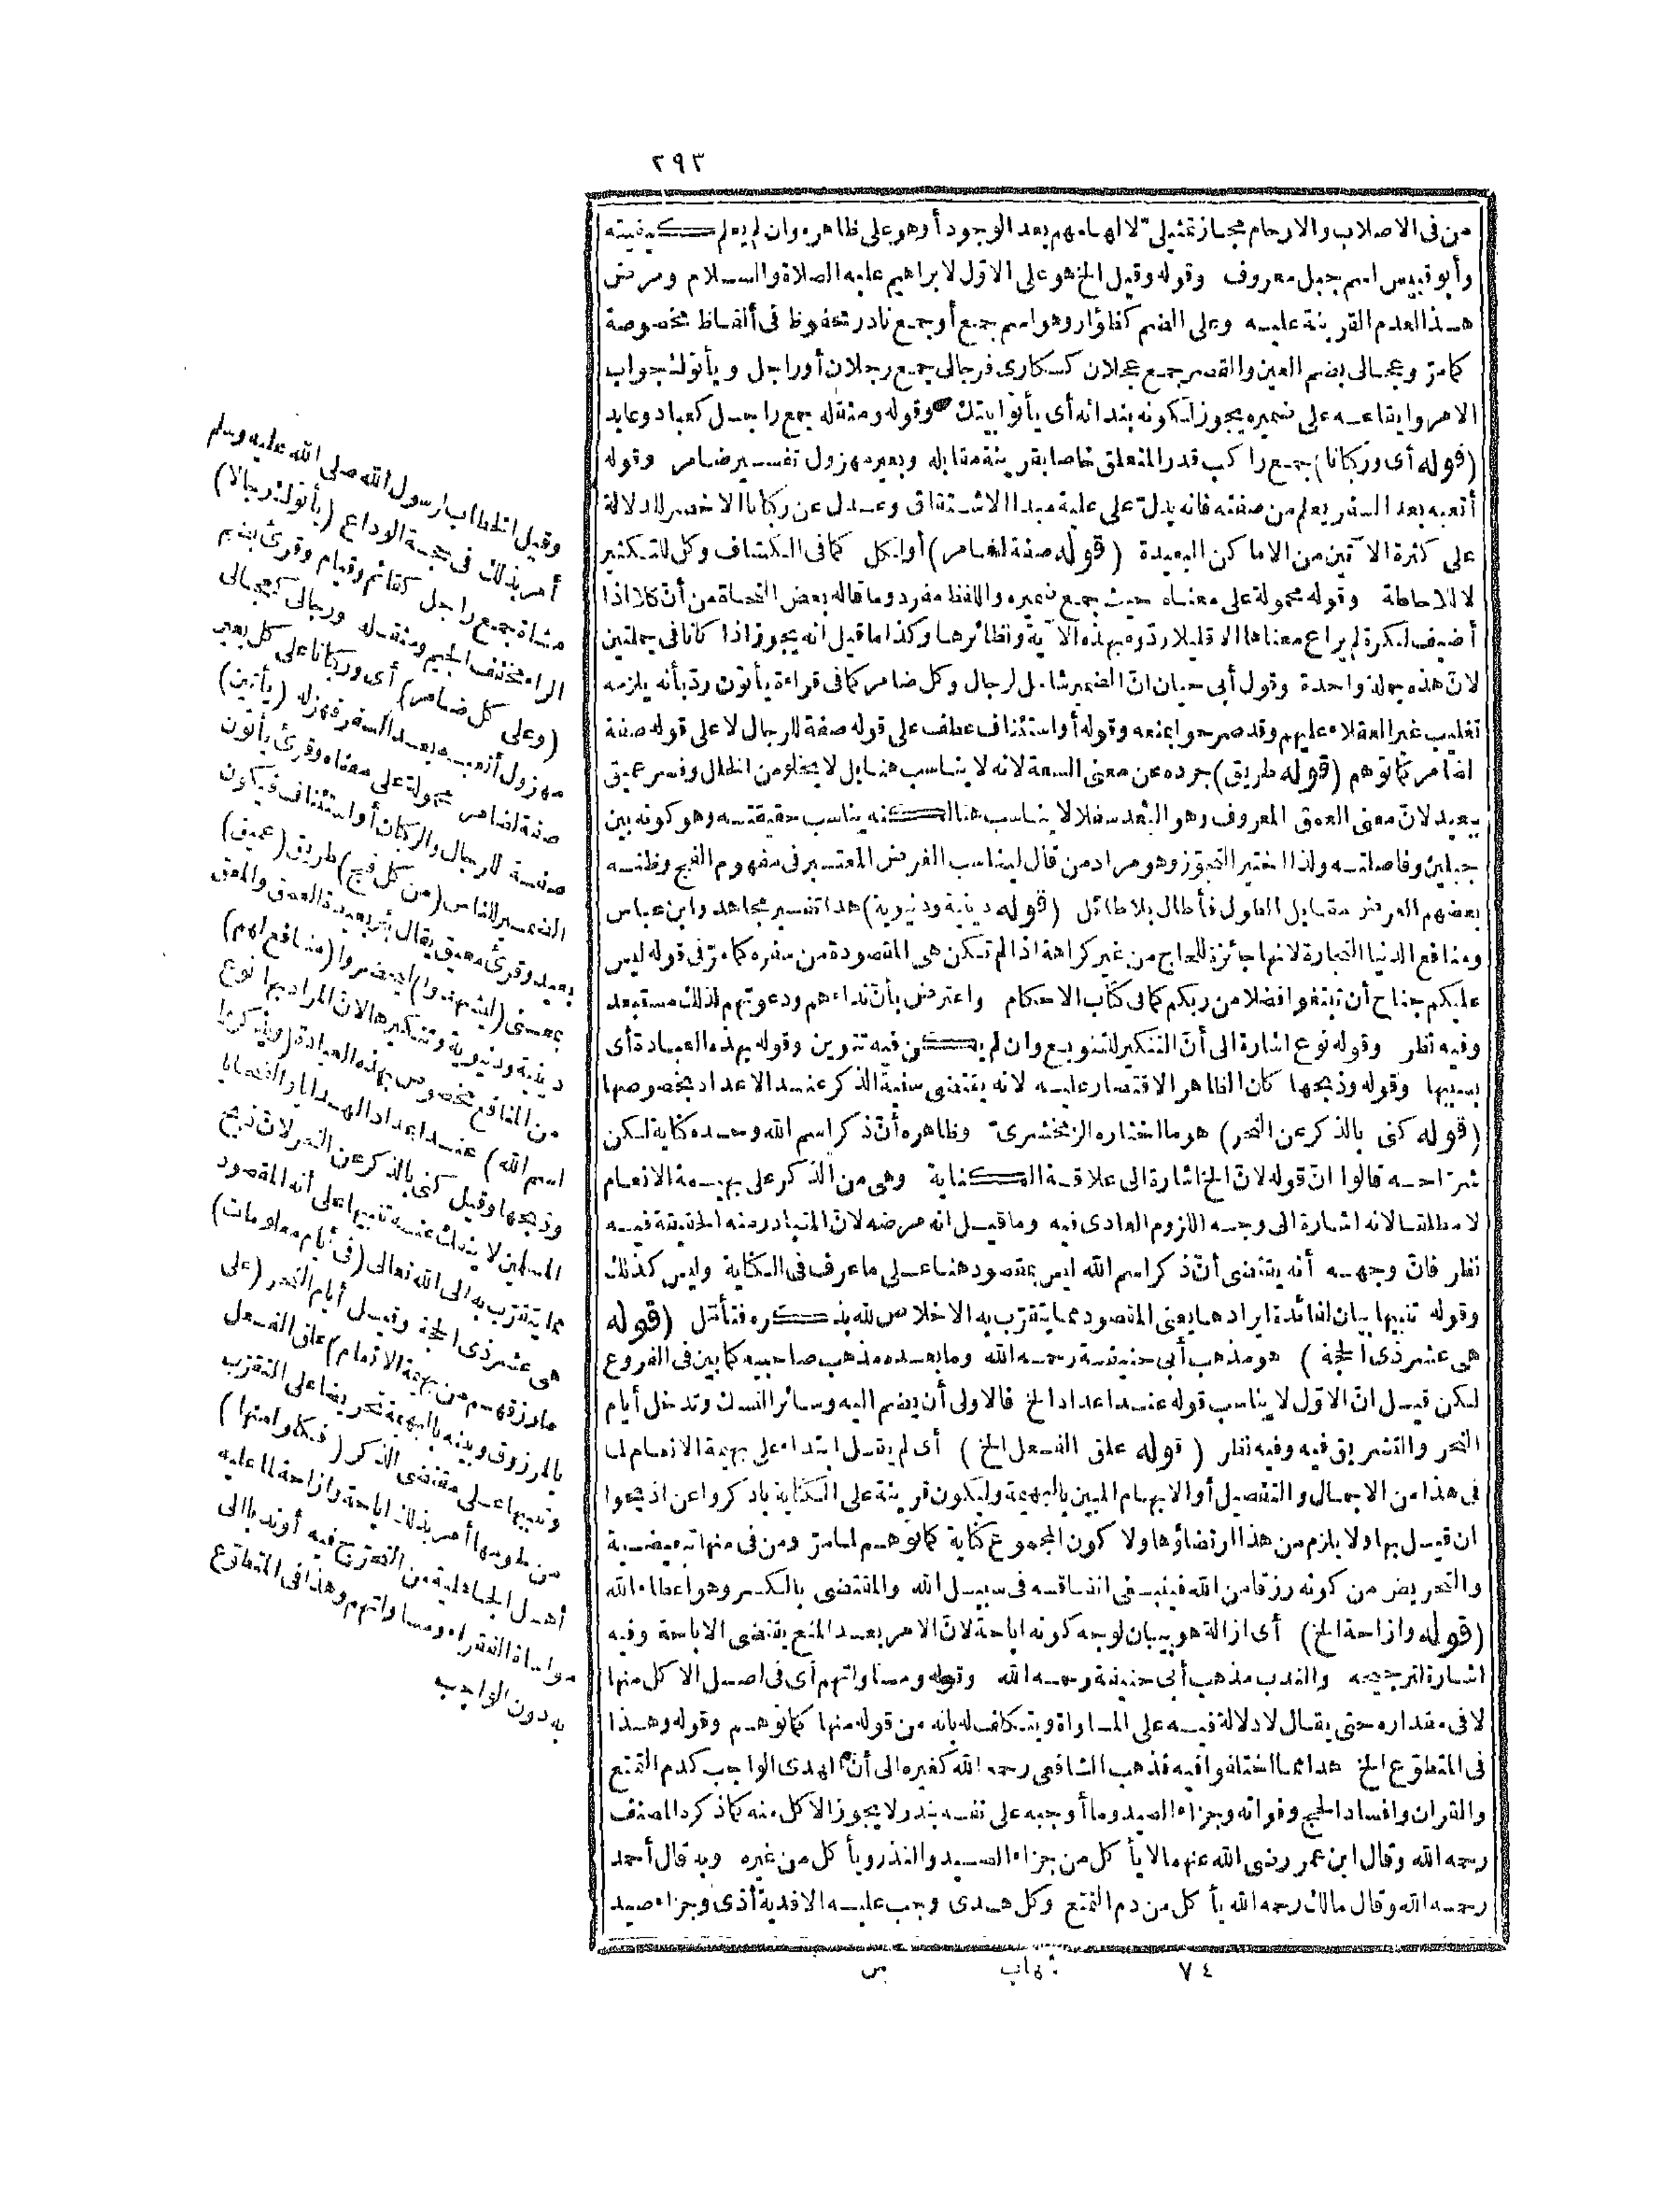 ٢٩٣
من فى الاصلاب والارحام مجاز تمثيلى لالهامهم بعد الوجود أو هو على ظاهره وان لم يعلم كيفيته
وأبو قبيس اسم جبل معروف وقوله وقيل الخ هو على الاوّل لابراهيم عليه الصلاة والسلام ومرض
هذا لعدم القرينة عليه وعلى الضم كظؤار وهو اسم جمع أو جمع نادر محفوظ فى ألفاظ مخصوصة
كما مرّ وعجالى بضم العين والقصر جمع عجلان كسكارى فرجالى جمع رجلان أو راجل ويأتوك جواب
الامر وايقاعه على ضميره يجوز لكونه بندائه أى يأتوا بيتك وقوله ومثقله جمع راجل كعباد وعابد
(قوله أى وركبانا) جمع راكب قدر المتعلق خاصا بقرينة مقابله وبعير مهزول تفسير ضامر وقوله
أتعبه بعد السفر يعلم من صفته فانه يدلّ على علية مبدا الاشتقاق وعدل عن ركبانا الاخصر للدلالة
على كثرة الآتين من الاماكن البعيدة (قوله صفة لضامر) أو لكل كما فى الكشاف وكل للتكثير
لا للاحاطة وقوله محمولة على معناه حيث جمع ضميره واللفظ مفرد وما قاله بعض النحاة من أن كلا اذا
أضيف لنكرة لم يراع معناها الا قليلا ردّوه بهذه الآية ونظائرها وكذا ما قيل انه يجوز اذا كانا فى جملتين
لانّ هذه جملة واحدة وقول أبى حيان انّ الضمير شامل لرجال وكل ضامر كما فى قراءة يأتون ردّ بأنه يلزمه
تغليب غير العقلاء عليهم وقد صرحوا بمنعه وقوله أو استئناف عطف على قوله صفة للرجال لا على قوله صفة
لضامر كما توهم (قوله طريق) جرده عن معنى السعة لانه لا يناسب هنا بل لا يخلو من الخلل وفسر عميق
ببعيد لانّ معنى العمق المعروف وهو البُعد سفلا لا يناسب هنا لكنه يناسب حقيقته وهو كونه بين
جبلين وفاصلته ولذا اختير التجوّز وهو مراد من قال ليناسب الغرض المعتبر فى مفهوم الفج وظنه
بعضهم العرض مقابل الطول فأطال بلا طائل (قوله دينية ودنيوية) هذا تفسير مجاهد وابن عباس
ومنافع الدنيا التجارة لانها جائزة للحاج من غير كراهة اذا لم تكن هى المقصودة من سفره كما مرّ فى قوله ليس
عليكم جناح أن تبتغوا فضلا من ربكم كما فى كتاب الاحكام واعترض بأنّ نداءهم ودعوتهم لذلك مستبعد
وفيه نظر وقوله نوع اشارة الى أنّ التنكير للتنويع وان لم يكن فيه تنوين وقوله بهذه العبادة أى
بسببها وقوله وذبحها كان الظاهر الاقتصار عليه لانه يقتضى سنية الذكر عند الاعداد بخصوصها
(قوله كنى بالذكر عن النحر) هو ما اختاره الزمخشرىّ وظاهره أنّ ذكر اسم الله وحده كناية لكن
شرّاحه قالوا انّ قوله لانّ الخ اشارة الى علاقة الكناية وهى من الذكر على بهيمة الانعام
لا مطلقا لانه اشارة الى وجه اللزوم العادى فيه وما قيل انه مرضه لانّ المتبادر منه الحقيقة فيه
نظر فانّ وجهه أنه يقتضى أنّ ذكر اسم الله ليس بمقصود هنا على ما عرف فى الكناية وليس كذلك
وقوله تنبيها بيان لفائدة ايرادها يعنى المقصود مما يتقرّب به الاخلاص لله بذكره فتأمّل (قوله
هى عشر ذى الحجة) هو مذهب أبى حنيفة رحمه الله وما بعده مذهب صاحبيه كما بين فى الفروع
لكن قيل انّ الاوّل لا يناسب قوله عند اعداد الخ فالاولى أن يضم اليه وسائر النسك وتدخل أيام
النحر والتشريق فيه وفيه نظر (قوله علق الفعل الخ) أى لم يقل ابتداء على بهيمة الانعام لما
فى هذا من الاجمال والتفصيل أو الابهام المبين بالبهيمة وليكون قرينة على الكناية باذكروا عن اذبحوا
ان قيل بها ولا يلزم من هذا ارتضاؤها ولا كون المجموع كناية كما توهم لما مرّ ومن فى منها تبعيضية
والتحريض من كونه رزقا من الله فينبغى انفاقه فى سبيل الله والمقتضى بالكسر وهو اعطاء الله
(قوله وازاحة الخ) أى ازالة هو بيان لوجه كونه اباحة لانّ الامر بعد المنع يقتضى الاباحة وفيه
اشارة لترجيحه والندب مذهب أبى حنيفة رحمه الله وقوله ومساواتهم أى فى اصل الاكل منها
لا فى مقداره حتى يقال لا دلالة فيه على المساواة ويتكلف له بانه من قوله منها كما توهم وقوله وهذا
فى المتطوّع الخ هذا مما اختلفوا فيه فذهب الشافعى رحمه الله كغيره الى أنّ الهدى الواجب كدم التمتع
والقران وافساد الحج وفواته وجزاء الصيد وما أوجبه على نفسه بنذر لا يجوز الاكل منه كما ذكره المصنف
رحمه الله وقال ابن عمر رضى الله عنهما لا يأكل من جزاء الصيد والنذر ويأكل من غيره وبه قال أحمد
رحمه الله وقال مالك رحمه الله يأكل من دم التمتع وكل هدى وجب عليه الا فدية أذى وجزاء صيد
وقيل الخطاب لرسول الله صلى الله عليه وسلم
أمر بذلك فى حجة الوداع (يأتوك رجالا)
مشاة جمع راجل كقائم وقيام وقرئ بضم
الراء مخفف الجيم ومثقله ورجالى كعجالى
(وعلى كل ضامر) أى وركبانا على كل بعير
مهزول أتعبه بعد السفر فهزله (يأتين)
صفة لضامر محمولة على معناه وقرئ يأتون
صفة للرجال والركبان أو استئناف فيكون
الضمير للناس (من كل فج) طريق (عميق)
بعيد وقرئ معيق يقال بئر بعيدة العمق والمعق
بمعنى (ليشهدوا) ليحضروا (منافع لهم)
دينية ودنيوية وتنكيرها لانّ المراد بها نوع
من المنافع مخصوص بهذه العبادة (ويذكروا
اسم الله) عند اعداد الهدايا والضحايا
وذبحها وقيل كنى بالذكر عن النحر لان ذبح
المسلمين لا ينفك عنه تنبيها على أنه المقصود
مما يتقرّب به الى الله تعالى (فى أيام معلومات)
هى عشر ذى الحجة وقيل أيام النحر (على
ما رزقهم من بهيمة الانعام) علق الفعل
بالمرزوق وبينه بالبهيمة تحريضا على التقرّب
وتنبيها على مقتضى الذكر (فكلوا منها)
من لحومها أمر بذلك اباحة وازاحة لما عليه
أهل الجاهلية من التحرّج فيه أو ندبا الى
مواساة الفقراء ومساواتهم وهذا فى المتطوّع
به دون الواجب
٧٤ شهاب س